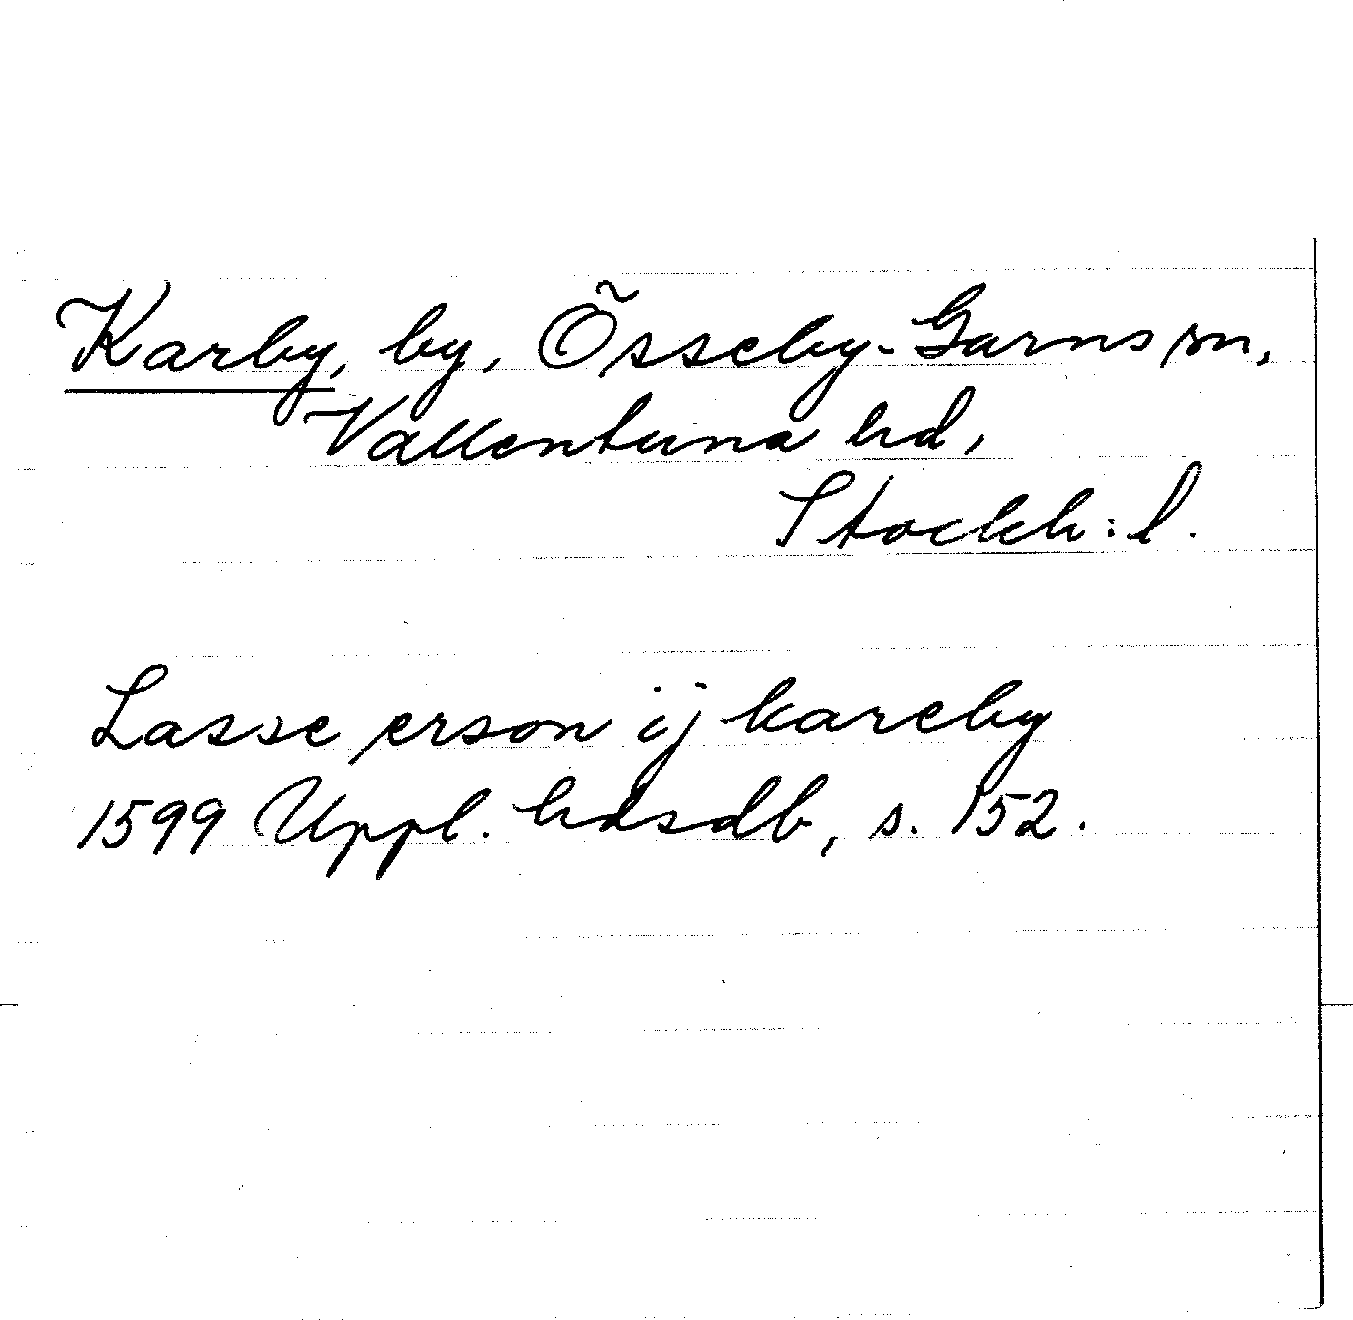 Karby, by, Össeby-Garns sn,
Vallentuna hd,
Stockh:l.
Lasse person ij kareby
1599 Uppl. hdsdb, s. 152.